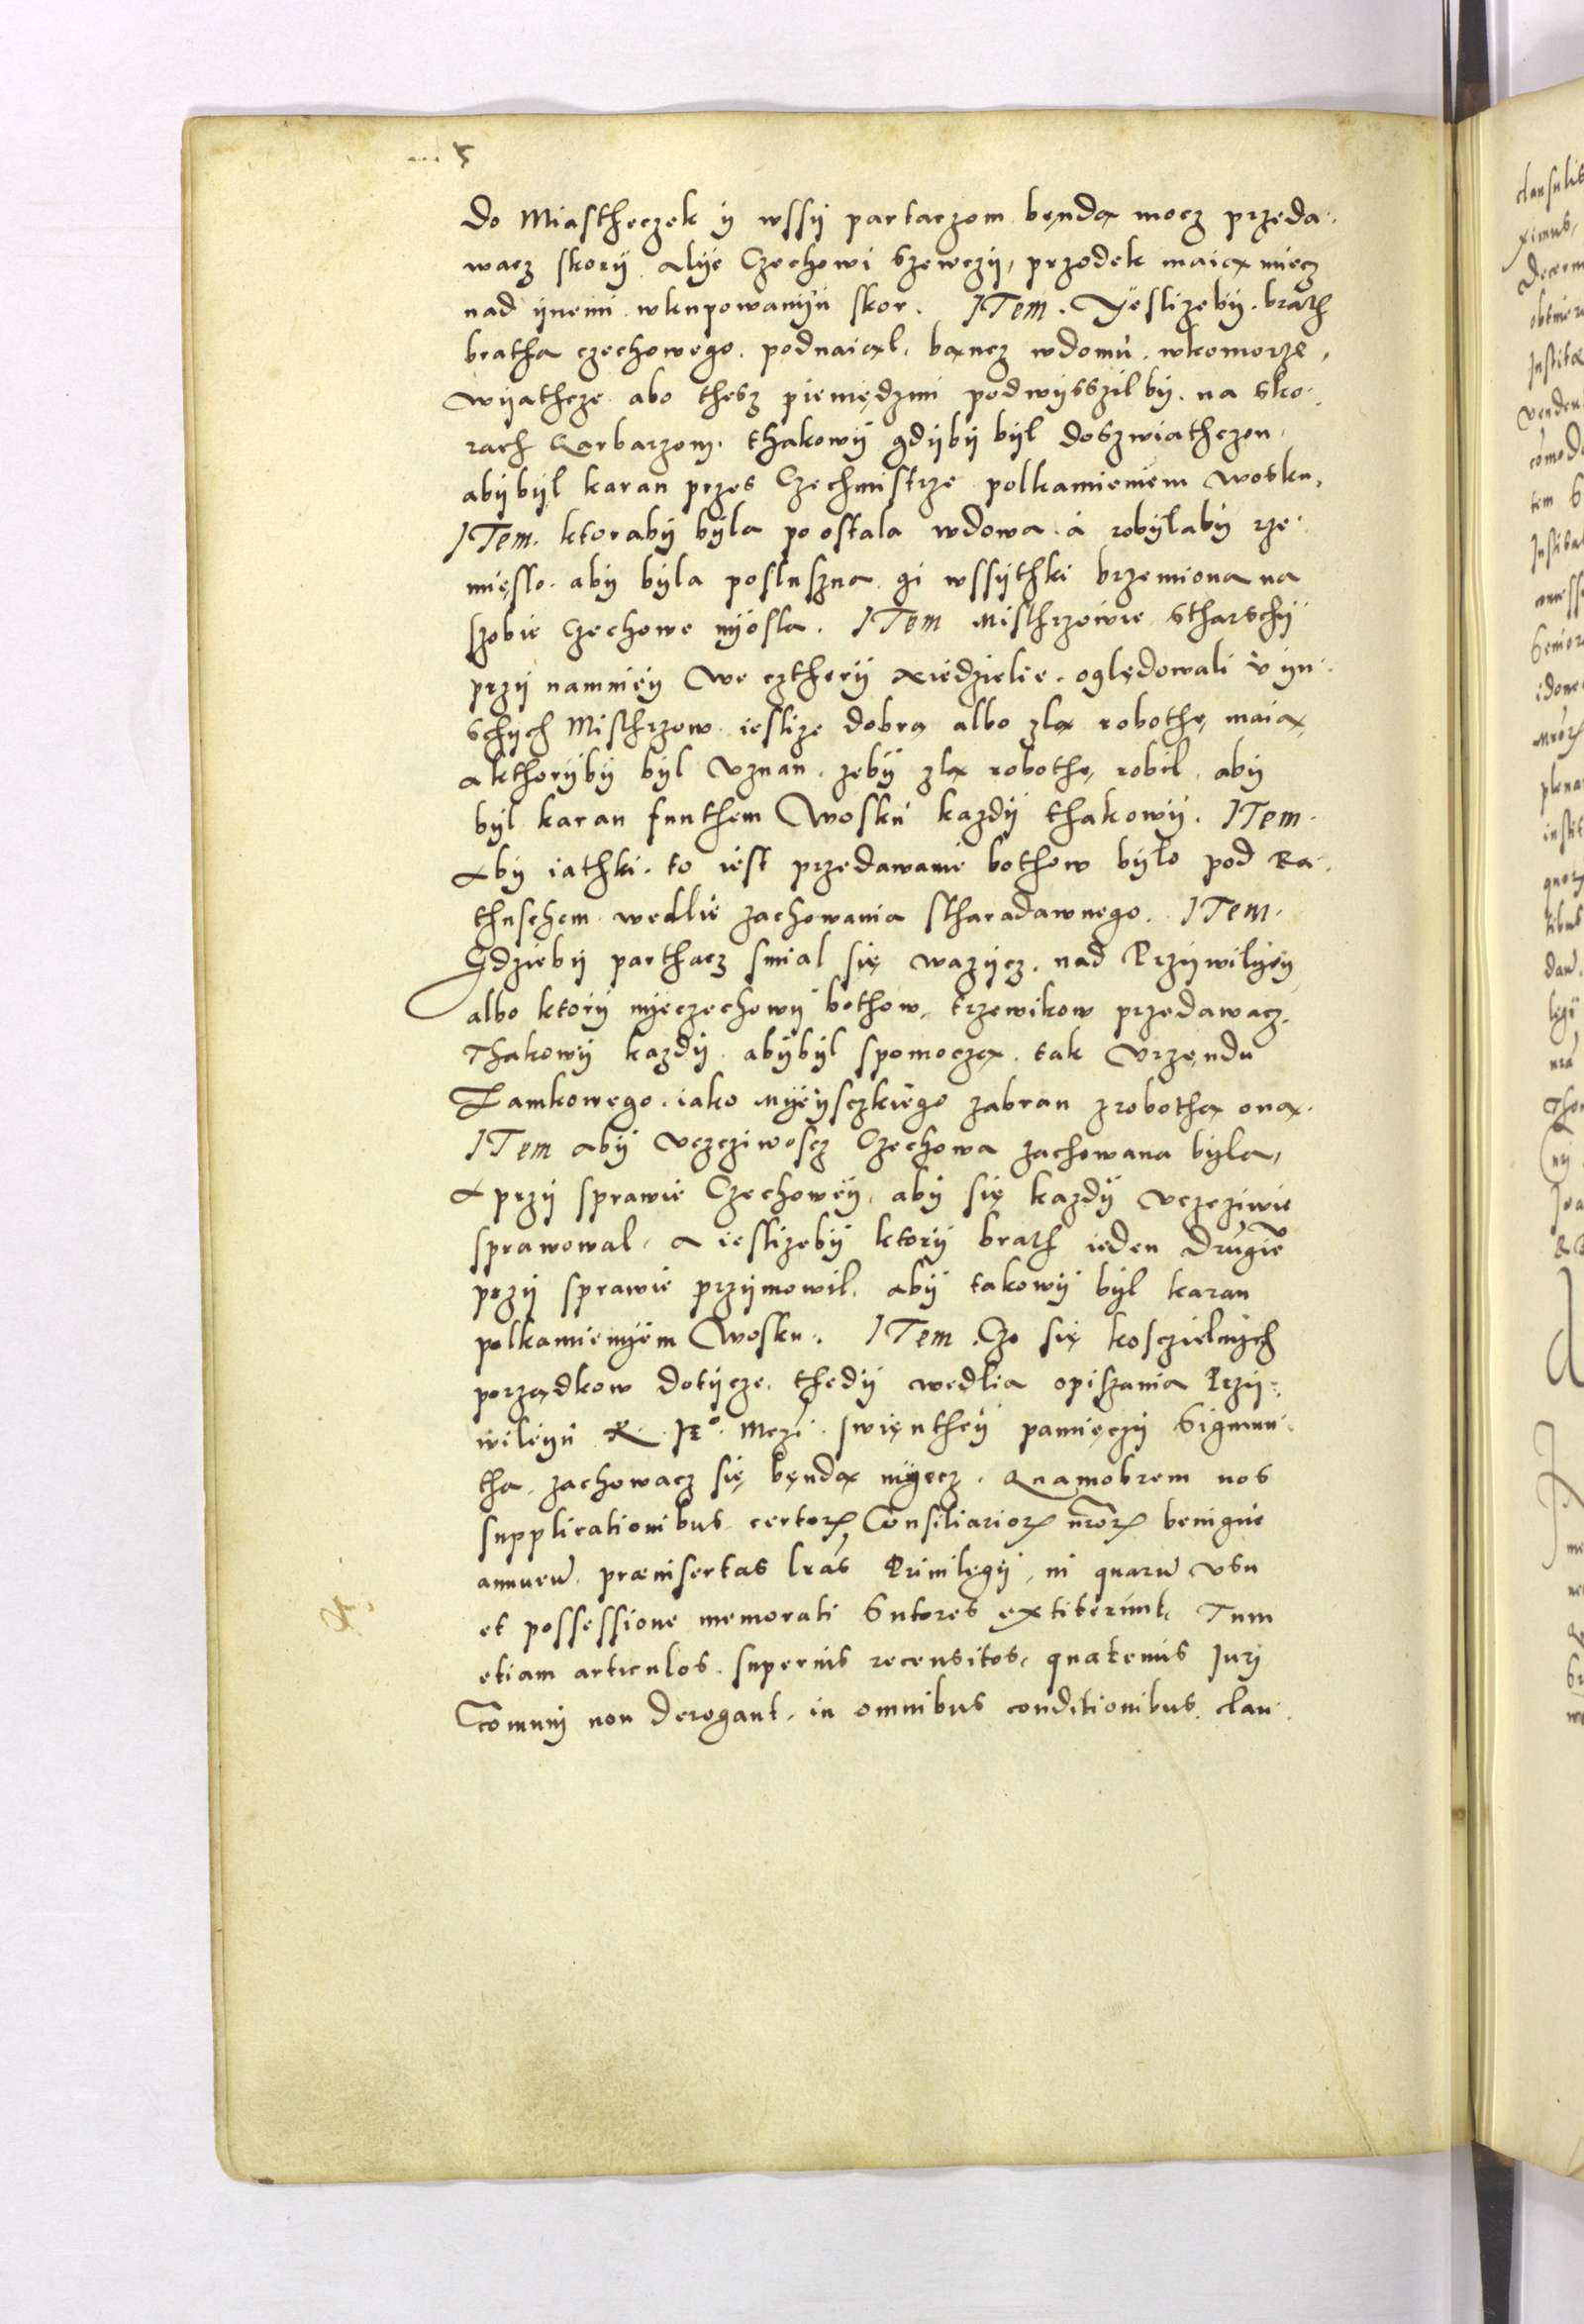 do Miastheczek ÿ wssÿ partaczom bęndą mocz przeda
wacz skorÿ. Alÿe Czechowi Szewczÿ, przodek maicą miecz
nad ÿnemi wkupowanÿu skor. ITem. Yeslizebÿ brath
bratha czechowego. podnaiąl, bąncz wdomu. wkomorze,
Wÿathcze abo thesz pieniędzmi podwÿsszil bÿ. na sko
rach Garbarzom. thakowÿ gdÿbÿ bÿl doszwiathczon,
abÿ bÿl karan przes Czechmistrze polkamieniem Wosku,
ITem. ktorabÿ bÿla po ostala wdowa. a robÿlabÿ rze
mięslo. abÿ bÿla posluszna gi wssÿthki brzemiona na
szobie Czechowe nÿosla. ITem Misthrzowie stharschÿ
przÿ namnieÿ We cztherÿ niedzielie. oględowali v ÿn
schÿch Misthrzow ieslize dobrą albo zlą robothę maią,
a kthorÿbÿ bÿl vznan. zebÿ zlą robothę robil. abÿ
bÿl karan funthem Wosku kazdÿ thakowÿ. ITem.
Abÿ iathki. to iest przedawanie bothow bÿło pod Ra
thuschem wedlie zachowania stharadawnego. ITem.
Gdziebÿ parthacz smial się wazÿcz. nad Przÿwilÿeÿ
albo ktorÿ nÿeczechowÿ bothow, trzewikow przedawacz.
Thakowÿ kazdÿ. abÿ bÿl spomoczą. tak Vrzęndu
Zamkowego. iako Mÿeÿsczkiego zabran z robothą oną.
ITem abÿ vczcziwoscz Czechowa zachowana bÿla,
A przÿ sprawie Czechoweÿ. abÿ się kazdÿ vczcziwie
sprawowal. A ieslizebÿ ktorÿ brath ieden drugie
przÿ sprawie przÿmowil. abÿ takowÿ bÿl karan
polkamienÿem Wosku. ITem. Czo się kosczielnÿch
porządkow dotÿcze. thedÿ wedlia opiszania Przÿ=
wileÿu K. Mczi. swiętheÿ pamięczÿ Sigmun
tha. zachowacz się będą mÿecz. Quamobrem nos
supplicationibus certor Consiliarior nror benigne
annuen. præinsertas lras Priuilegÿ, in quaru vsu
et possessione memorati Sutores extiterunt, Tum
etiam articulos. superius recensitos, quatenus Iuri
Comuni non derogant, in omnibus conditionibus. clau